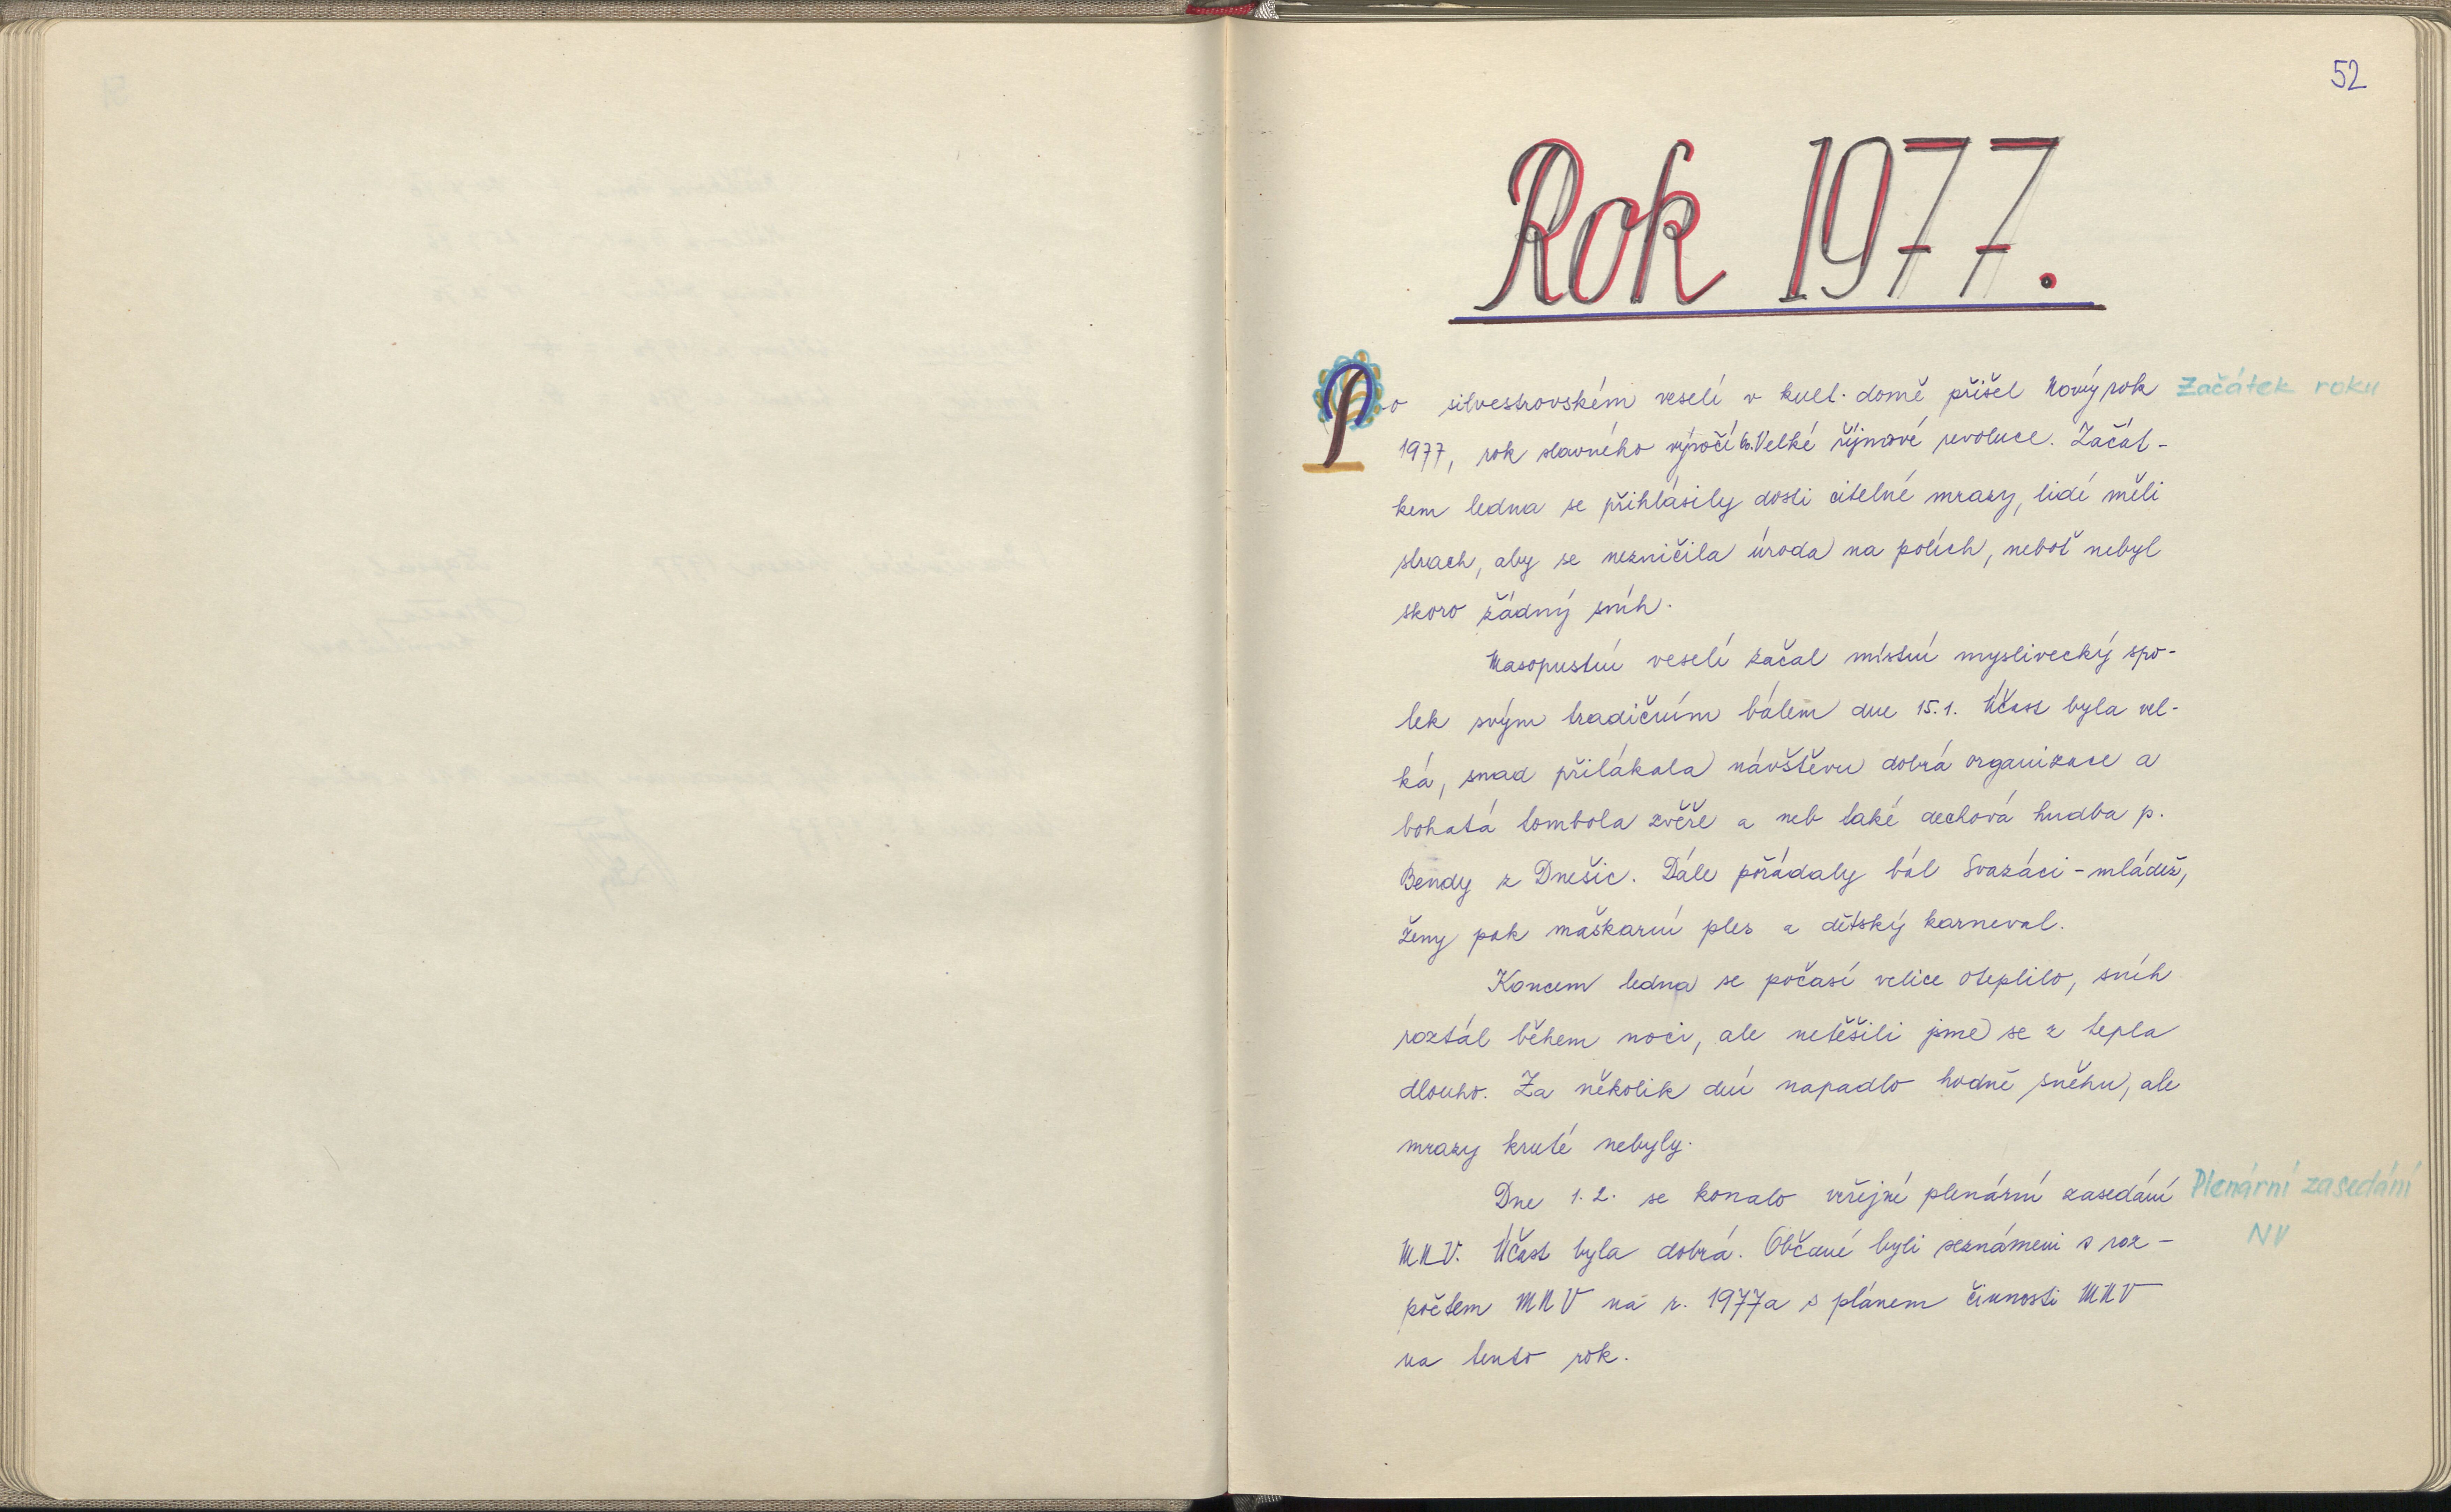 52
Rok 1977.
Po silvestrovském veselí v kult. domě přišel Nový rok
Začátek roku
1977, rok slavného výročí 60. Velké říjnové revoluce. Začát-
kem ledna se přihlásily dosti citelné mrazy, lidé měli
strach, aby se nezničila úroda na polích, neboť nebyl
skoro žádný sníh.
Masopustní veselí začal místní myslivecký spo-
lek svým tradičním bálem dne 15.1. Účast byla vel-
ká, snad přilákala návštěvu dobrá organizace a
bohatá tombola zvěře a neb také dechová hudba p.
Bendy z Dnešic. Dále pořádaly bál Svazáci - mládež,
ženy pak maškarní ples a dětský karneval.
Koncem ledna se počasí velice oteplilo, sníh
roztál během noci, ale netěšili jsme se z tepla
dlouho. Za několik dní napadlo hodně sněhu, ale
mrazy kruté nebyly.
Dne 1. 2. se konalo veřejné plenární zasedání
Plenární zasedání
NV
MNV. Účast byla dobrá. Občané byli seznámeni s roz-
počtem MNV na r. 1977 a s plánem činnosti MNV
na tento rok.